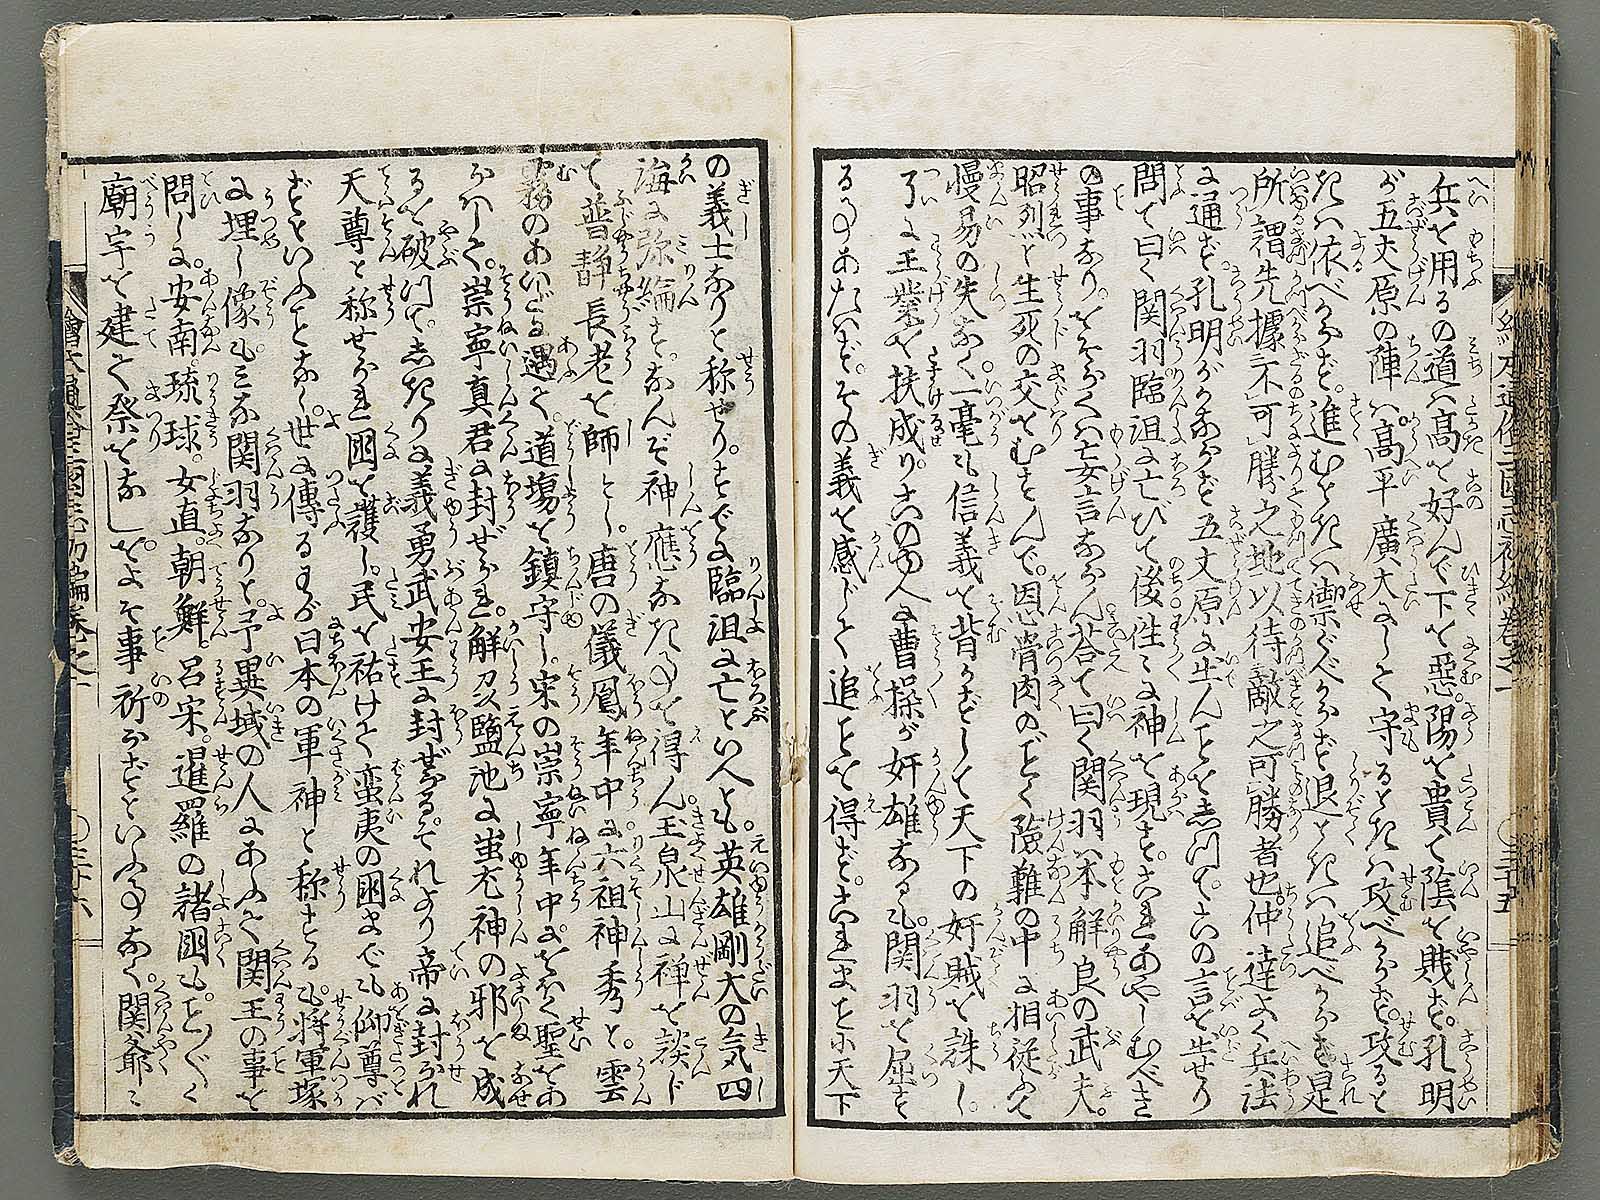 兵を用るの道は高を好んで下を惡。陽を貴て陰を賤ず。孔明
が五丈原の陣は。高平廣大にして守るときは攻べからず。攻ると
きは依べからず。進むときは禦ぐべからず退ときは追べからず是
所謂先據不可勝之地以待敵之可勝者也仲達よく兵法
に通ず。孔明がかならず五丈原に出んことをしつて。この言を出せり
問て曰く関羽。臨沮に亡びて後往々に神を現す。これあやしむべき
の事なり。をそらくは妄言ならん答て曰く関羽は本解良の武夫。
昭烈と生死の交をむすんで。恩骨肉のごとく險難の中に相従ふて
慢易の失なく。一毫も信義を背かずして天下の奸賊を誅し。
つに王業を扶成り。この時人に曹操が奸雄なるも。関羽を屈す
る事あたはず。その義を感じて追ことを得ず。これまことに天下
の義士なりと称せり。すでに臨沮に亡といへども。英雄剛大の気四
海に弥綸す。なんぞ神應なき事を得ん玉泉山に禅を談じ
て普静長老を師とし。唐の儀鳳年中に六祖神秀と。雲
霧のあいだに遇て。道場を鎮守し。宋の崇寧年中に。をほく聖をあ
らはして。崇寧真君に封ぜられ。解州塩池に蚩尤神の邪を成
るを破つて。しきりに義勇武安王に封ぜらる。それより帝に封られ
天尊と称せられ国を護し。民を祐けて蛮夷の国までも仰尊ば
ずといふことなし。世に傳るわが日本の軍神と称する。も将軍塚
に埋し像。もみな関羽なりと。予異域の人にあふて関王の事を
問しに。安南。琉球。女直。朝鮮。呂宋。暹羅の諸国も。ことごとく
廟宇を建て祭をなし。をよそ事祈らずといふ事なく。関爺々